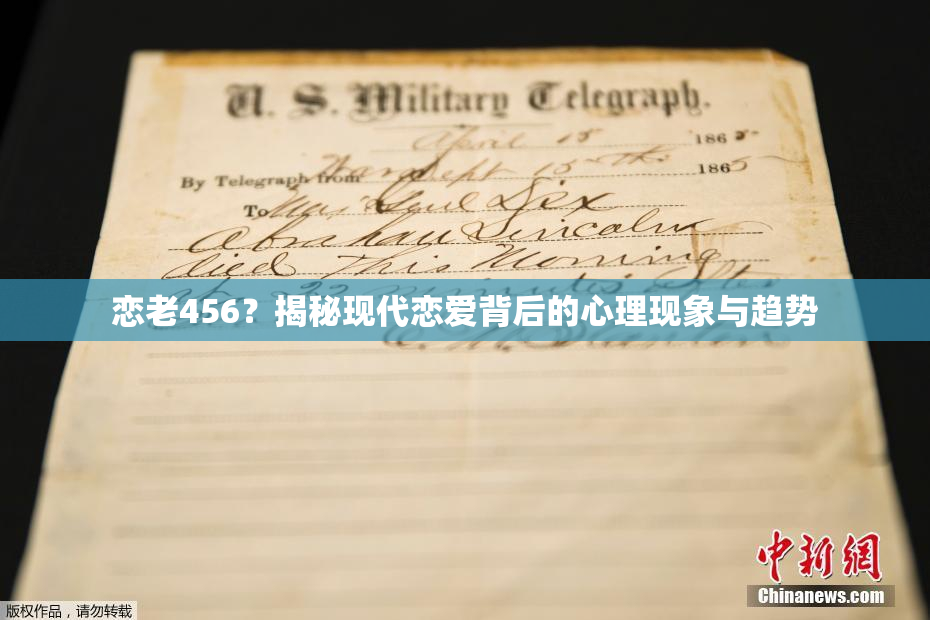 U. S. Military Telegraph.
April 15 1865
By Telegraph from War Dept 15th 1865
To Maj Genl Dix
Abraham Lincoln
died This Morning
恋老456？揭秘现代恋爱背后的心理现象与趋势
中新网
Chinanews.com
版权作品，请勿转载